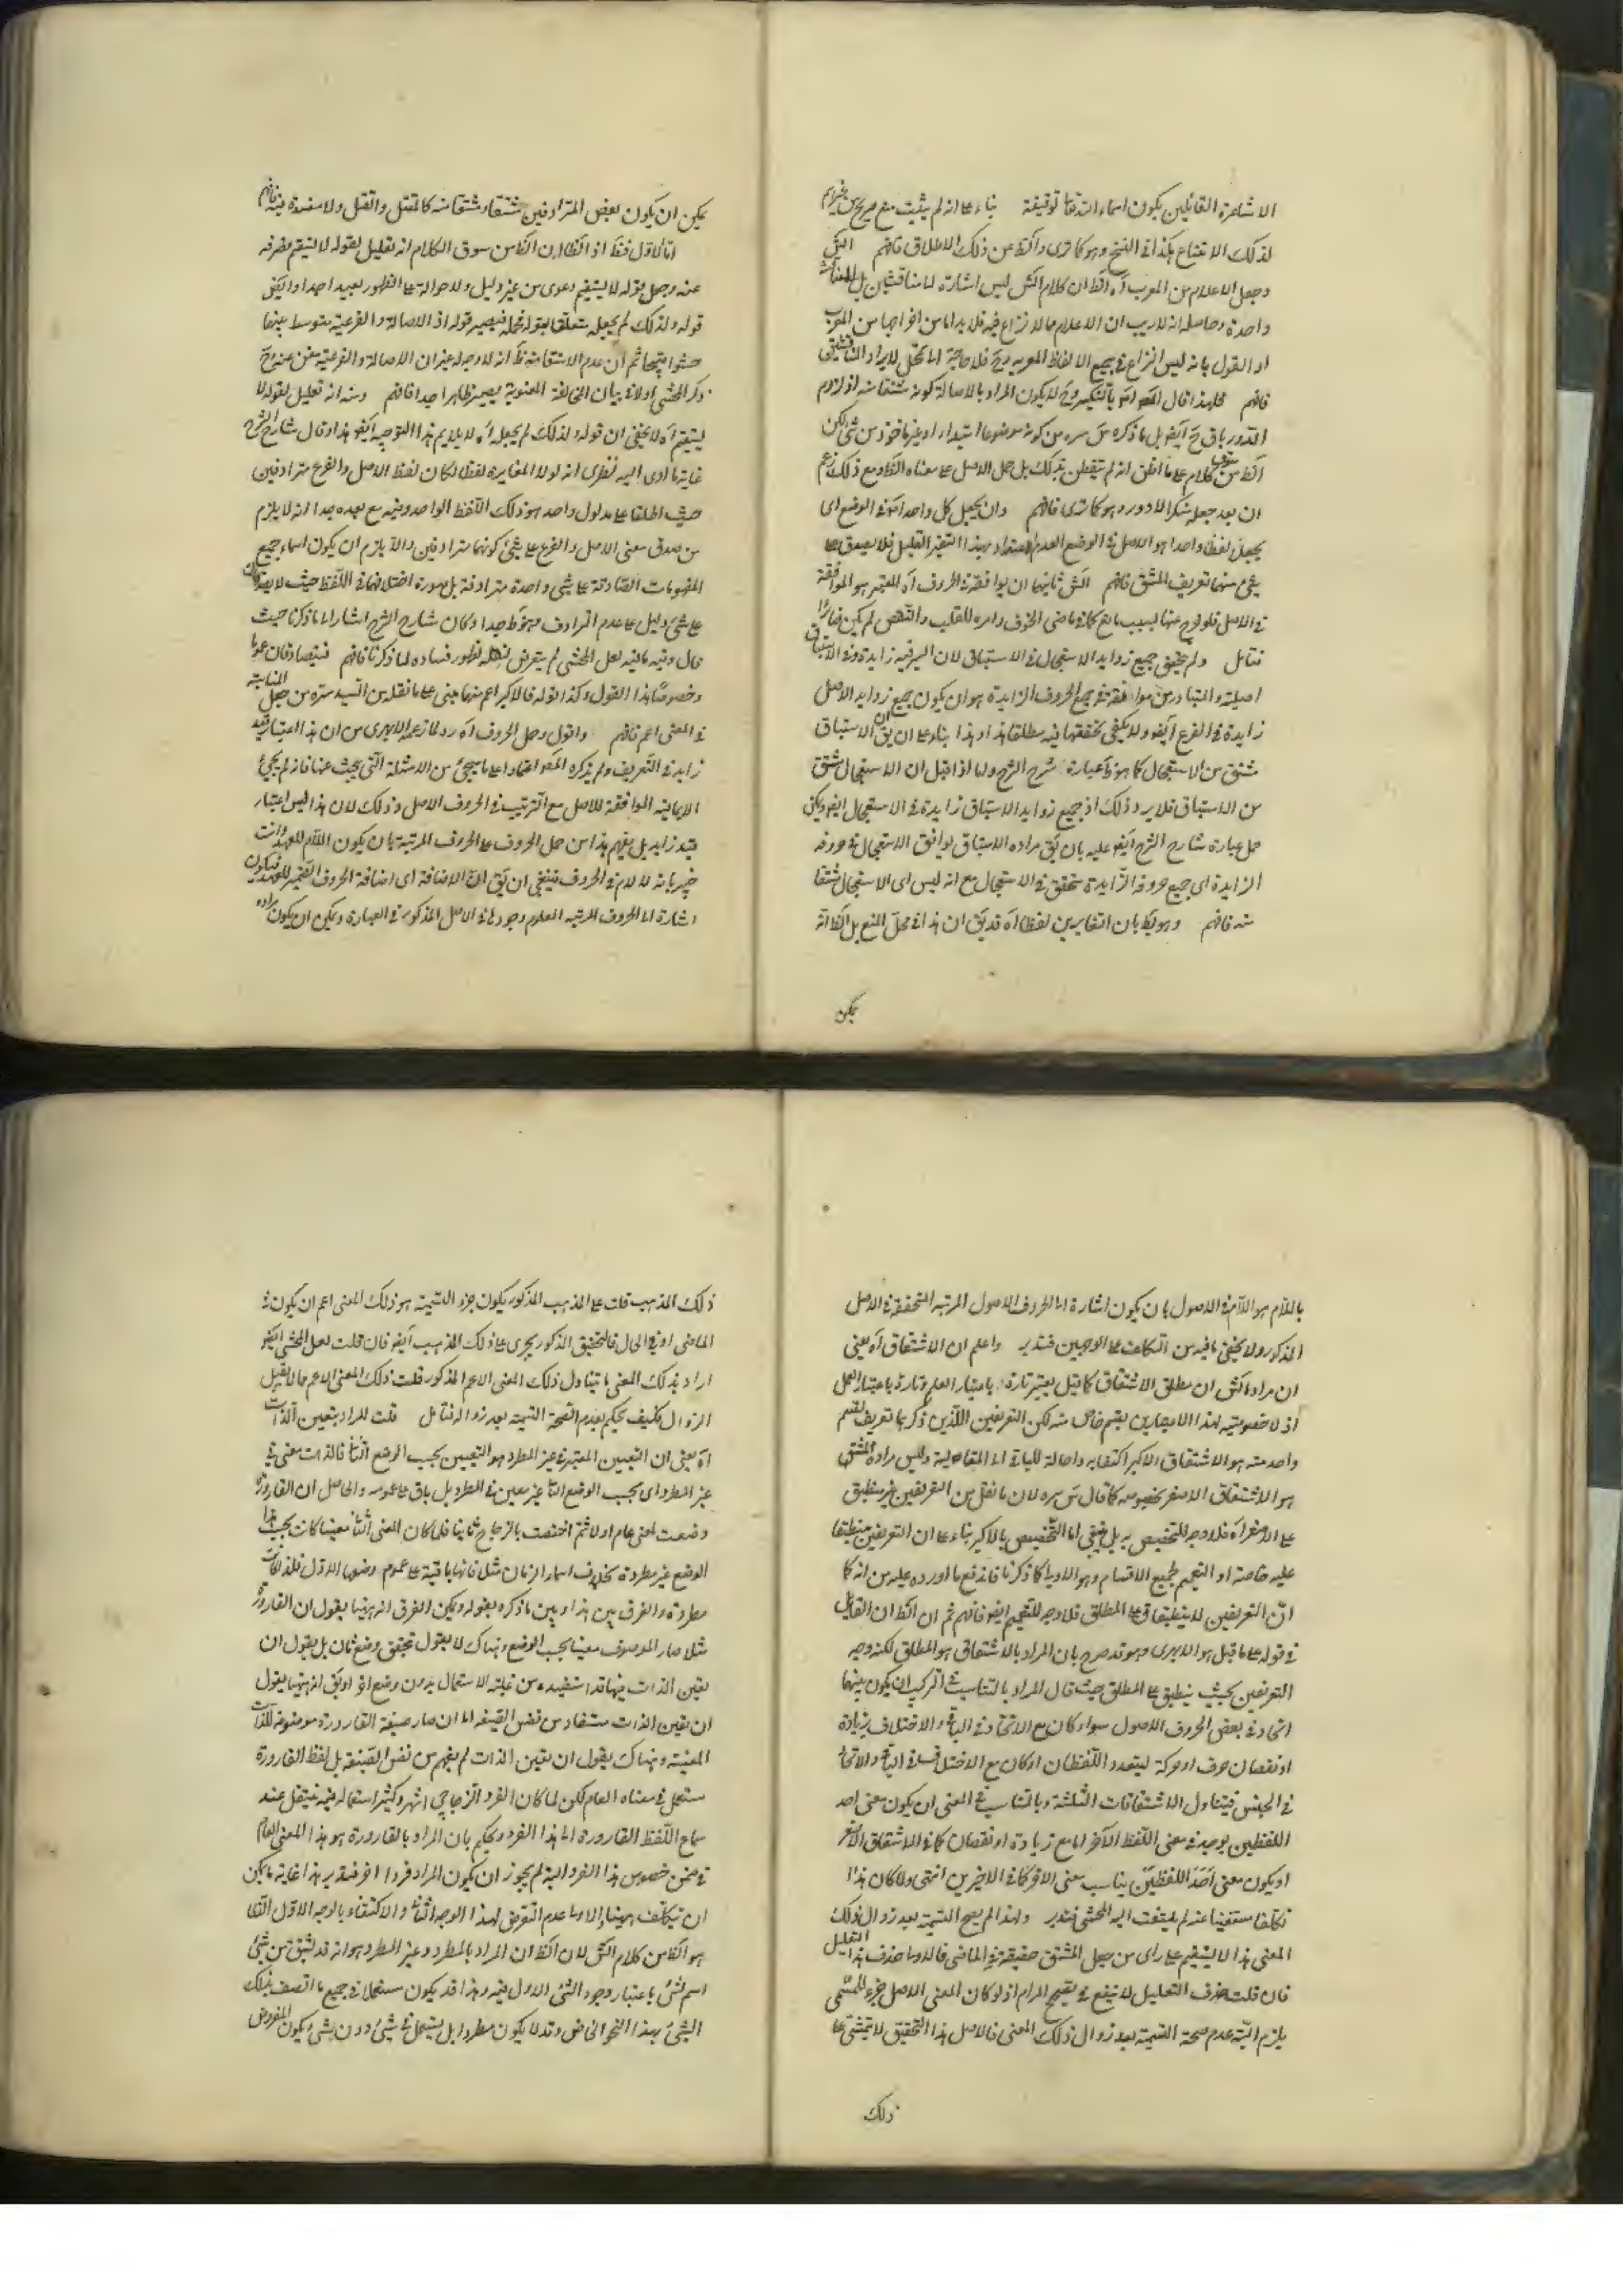 الاشاعرة القائلين بكون اسماء الله تعا توقيفة بناء علے انه لم يثبت منع صريح
لذلك الامتناع هكذا في النسخ وهو كما ترى واﻟﻈ عن ذلك الاطلاق فافهم
وجعل الاعلام من المعرب آه اﻟﻈ ان كلام الش ليس اشارة
واحدة وحاصله انه لا ريب ان الاعلام مما لا نزاع فيه فلا بد اما من اخراجها من المعرب
او القول بانه ليس النزاع في جميع الالفاظ المعربه وح فلا حاجة الى
فافهم فلهذا قال وح لا يكون المراد بالاصالة كونه مشتقا منه اذ لزوم
الدور باق ح ايض بل ما ذكره س سره من كونه موضوعا ابتداء او غير ماخوذ من شئ لكن
اﻟﻈ من كلامه علے ما اظن انه لم يتفطن بذلك بل حمل الاصل علے معناه اﻟﻈ ومع ذلك زعم
فافهم وان يجعل كل واحد آه في الوضع اى
يجعل لفظا واحدا هو الاصل في الوضع بهذا التغير القليل فلا يصدق علے
شئ منها تعريف المشتق فافهم الش ثانيها ان يوافقه في الحروف آه المعتبر هو الموافقة
في الاصل فلو خرج عنها لسبب مانع كما في ماضى الخوف وامره للقلب والنقص لم يكن
فتامل ولم يتحقق جميع زوايد الاستعجال في الاستباق لان السين فيه زايدة وفي الاستباق
اصلية والمتبادر من موافقته في جميع الحروف الزايدة هو ان يكون جميع زوايد الاصل
زايدة في الفرع ايض ولا يكفى تحققها فيه مطلقا هذا وهذا بناء علے ان يق ان الاستباق
مشتق من الاستعجال كما هو عبارة شرح الشرح واما اذا قيل ان الاستعجال مشتق
من الاستباق فلا يرد ذلك اذ جميع زوايد الاستباق زايدة في الاستعجال ايض ويمكن
حمل عبارة شارح الشرح ايض عليه بان يق مراده الاستباق يوافق الاستعجال في حروفه
الزايدة اى جميع حروفه الزايدة متحقق في الاستعجال مع انه ليس اى الاستعجال مشتقا
منه فافهم وهو بط بان التغايرين لفظا آه قد يق ان هذا في محل المنع بل اﻟﻈ انه
يمكن
يمكن ان يكون بعض المترادفين مشتقا ومشتقا منه كالمقتل والقتل ولا مفسدة فيه فافهم
اما الاول فقط اذ اﻟﻈ من سوق الكلام انه تعليل لقوله لا يستقيم فصرفه
عنه وجعل قوله لا يستقيم دعوى من غير دليل والاحوالة علے الظهور بعيد جدا وايض
قوله ولذلك لم يجعله متعلق بقوله فيصير قوله اذ الاصالة والفرعية متوسط بينهما
حشوا قبيحا ثم ان عدم الاستقامة
ذكر المحشى اولا في بيان المخالفة المعنوية يصير ظاهرا جدا فافهم ومنه انه تعليل لقوله لا
يستقيم آه لا يخفى ان قوله ولذلك لم يجعله آه لا يلايم هذا التوجيه ايض هذا وقال شارح الشرح
غاية ما ادى اليه نظرى انه لولا المغايرة لفظا لكان لفظ الاصل والفرع مترادفين
حيث اطلقا علے مدلول واحد هو ذلك اللفظ الواحد وفيه مع بعده جدا انه لا يلزم
من صدق معنى الاصل والفرع علے شئ كونهما مترادفين والا يلزم ان يكون اسماء جميع
المفهومات الصادقة علے شئ واحدة مترادفة بل صورة اختلافهما في اللفظ حيث لا يصدقان
علے شئ دليل علے عدم الترادف فهو خبط جدا وكان شارح الشرح اشار الى ما ذكرنا حيث
قال وفيه ما فيه لعل المحشى لم يتعرض لنقله لظهور فساده لما ذكرنا فافهم فيتصادقان عموما
وخصوصا هذا القول وكذا قوله فالاكبر اعم منهما مبنى علے ما نقله من السيد سره من جعل المناسبة
في المعنى اعم فافهم واقول وحمل الحروف آه رد لما زعمه الابهرى من ان هذا اعتبار قيد
زايد في التعريف ولم يذكره المص اعتمادا علے ما سيجئ من الامثلة التى يحث عنها فانه لم يجئ
الا بما فيه الموافقة للاصل مع الترتيب في الحروف الاصل وذلك لان هذا ليس اعتبار
قيد زايد بل يفهم هذا من حمل الحروف علے الحروف المرتبة بان يكون اللام للعهد وانت
خبير بانه لا لام في الحروف فينبغى ان يق ان الاضافة اى اضافة الحروف الى الضمير للعهد فيكون
اشارة الى الحروف المرتبه المعلوم وجودها في الاصل المذكور في العبارة ويمكن ان يكون مراده
باللام هو اللام في الاصول بان يكون اشارة الى الحروف الاصول المرتبه المتحققة في الاصل
المذكور ولا يخفى ما فيه من التكلف علے الوجهين فتدبر واعلم ان الاشتقاق آه يعنى
ان مراد الش ان مطلق الاشتقاق كما قيل يعتبر تارة باعتبار العلم وتارة باعتبار العمل
اذ لا خصوصيه لهذا الاعتبارين بقسم خاص منه لكن التعريفين اللذين ذكرهما تعريف لقسم
واحد منه هو الاشتقاق الاكبر اكتفاء به واحالة للباقى الى المقايسة وليس مراده
هو الاشتقاق الاصغر بخصوصه كما قال س سره لان ما نقل من التعريفين غير منطبق
علے الاصغر آه فلا وجه للتخصيص به بل ينبغى اما التخصيص بالاكبر بناء علے ان التعريفين منطبقا
عليه خاصة او التعميم لجميع الاقسام وهو الاولى كما ذكرنا فاندفع ما اورده عليه من انه كما
ان التعريفين لا ينطبقان علے المطلق فلا وجه للتعميم ايض فافهم ثم ان اﻟﻈ ان القائل
في قوله علے ما قيل هو الابهرى وهو قد صرح بان المراد بالاشتقاق هو المطلق لكنه وجه
التعريفين بحيث ينطبق علے المطلق حيث قال المراد بالتناسب في التركيب ان يكون بينهما
اتحاد في بعض الحروف الاصول سواء كان مع الاتحاد في الباقى والاختلاف بزيادة
او نقصان حرف او حركة ليتعدد اللفظان او كان مع الاختلاف في الباقى والاتحاد
في الجنس فيتناول الاشتقاقات الثلثة وبالتناسب في المعنى ان يكون معنى احد
اللفظين يوجد في معنى اللفظ الآخر اما مع زيادة او نقصان كما في الاشتقاق الاصغر
او يكون معنى احد اللفظين يناسب معنى الاخر كما في الاخيرين انتهى ولما كان هذا
تكلفا مستغنيا عنه لم يلتفت اليه المحشى فتدبر ولهذا لم يصح التسمية بعد زوال ذلك
المعنى هذا لا يستقيم علے راى من جعل المشتق حقيقة في الماضى فالاولى حذف هذا التعليل
فان قلت حذف التعليل لا ينفع في تصحيح المرام اذ لو كان المعنى الاصل جزء المسمى
يلزم البتة عدم صحة التسمية بعد زوال ذلك المعنى فالاصل هذا التحقيق لا يتمشى علے
ذلك
ذلك المذهب قلت علے المذهب المذكور يكون جزء التسمية هو ذلك المعنى اعم ان يكون في
الماضى او في الحال فالتحقيق المذكور يجرى علے ذلك المذهب ايض فان قلت لعل المحشى ايض
اراد بذلك المعنى ما يتناول ذلك المعنى الاعم المذكور قلت ذلك المعنى الاعم مما لا يقبل
الزوال فكيف يحكم بعدم الصحة التسمية بعد زواله فتامل قلت المراد بتعيين الذات
آه يعنى ان التعيين المعتبر في غير المطرد هو التعيين بحسب الوضع الثانى فالذات معنى في
غير المطرد اى بحسب الوضع الثانى غير معين في المطرد بل باق علے عمومه والحاصل ان القارورة
وضعت لمعنى عام اولا ثم اختصت بالزجاج ثانيا فلما كان المعنى الثانى معينا كانت بحسب هذا
الوضع غير مطردة بخلاف اسماء الزمان مثلا فانها باقية علے عموم وضعها الاول فلذا كانت
مطردة والفرق بين هذا وبين ما ذكره بقوله ويمكن الفرق انه ههنا يقول ان القارورة
مثلا صار الموصوف معينا بحسب الوضع وهناك لا يقول بتحقق وضع ثان بل يقول ان
تعين الذات فيها قد استفيد من غلبة الاستعمال بدون وضع او يق انه ههنا يقول
ان تعين الذات مستفاد من نفس الصيغة اما ان صار صيغة القارورة موضوعة للذات
المعينة وهناك يقول ان تعين الذات لم يفهم من نفس الصيغة بل لفظ القارورة
مستعمل في معناه العام لكن لما كان الفرد الزجاجى اشهر وكثير استعماله فيه فينتقل عند
سماع اللفظ القارورة الى هذا الفرد ويحكم بان المراد بالقارورة هو هذا المعنى العام
في ضمن خصوص هذا الفرد البتة لم يجوز ان يكون المراد فردا اخر فتدبر هذا غاية ما يمكن
ان يتكلف ههنا والاولى عدم التعرض لهذا الوجه الثانى والاكتفاء بالوجه الاول الذى
هو اﻟﻈ من كلام الش لان اﻟﻈ ان المراد بالمطرد وغير المطرد هو انه قد يشتق من شئ
اسم لشئ باعتبار وجود الشئ الاول فيه وهذا قد يكون مستعملا في جميع ما اتصف بذلك
الشئ بهذا النحو الخاص وقد لا يكون مطردا بل يستعمل في شئ دون شئ ويكون المفروض